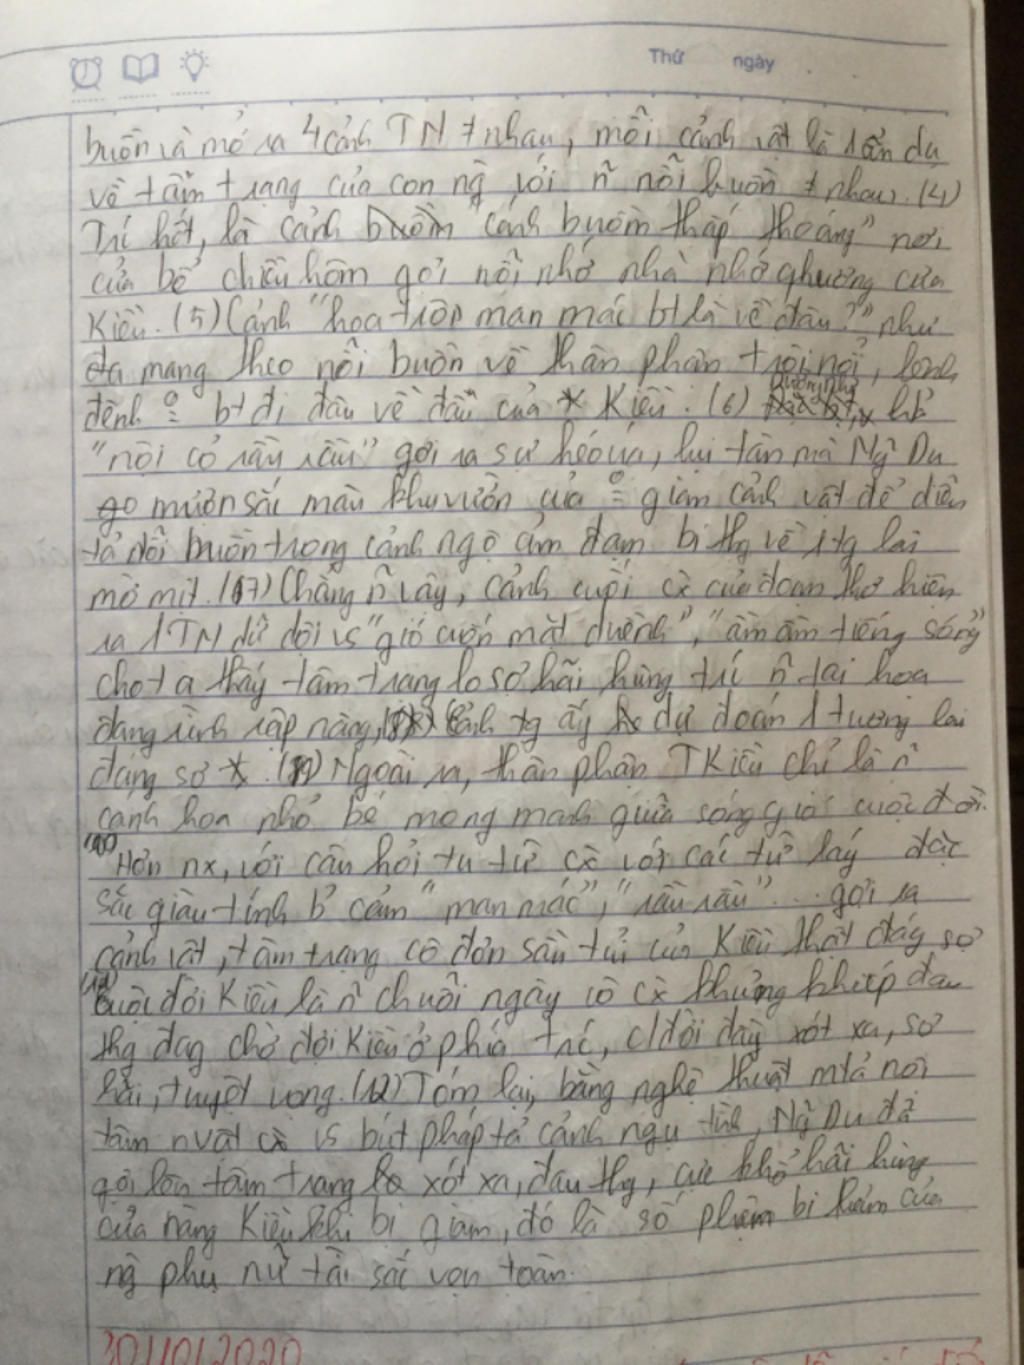 Thứ ngày
buồn và mở ra 4 cảnh TN ≠ nhau, mỗi cảnh vật là 1 ẩn dụ
về tâm trạng của con ng với n~ nỗi buồn ≠ nhau. (4)
Trc hết, là cảnh "cánh buồm thấp thoáng" nơi
cửa bể chiều hôm gợi nỗi nhớ nhà nhớ qhương của
Kiều. (5) Cảnh "hoa trôi man mác bt là về đâu?" như
đã mang theo nỗi buồn về thân phận trôi nổi, lênh
đênh bt đi đâu về đâu của Kiều. (6)
"nội cỏ rầu rầu" gợi ra sự héo úa, lụi tàn mà Ng~ Du
mượn sắc màu khu vườn của giam cảnh vật để diễn
tả nỗi buồn trong cảnh ngộ ảm đạm bi thg về tg lai
mờ mịt. (7) Chẳng n~ vậy, cảnh cuối cx của đoạn thơ hiện
ra 1 TN dữ dội vs "gió cuốn mặt duềnh", "ầm ầm tiếng sóng"
cho ta thấy tâm trạng lo sợ hãi hùng trc n~ tai hoạ
đang rình rập nàng, cảnh tg ấy dự đoán 1 tương lai
đáng sợ. (9) Ngoài ra, thân phận TKiều chỉ là n~
cánh hoa nhỏ bé mong manh giữa sóng gió cuộc đời.
(10) Hơn nx, với câu hỏi tu từ cx với các từ láy đặc
sắc giàu tính b' cảm "man mác", "rầu rầu"... gợi ra
cảnh vật, tâm trạng cô đơn sầu tủi của Kiều thật đáng sợ
Cuộc đời Kiều là n~ chuỗi ngày cx khủng khiếp đau
thg đag chờ đợi Kiều ở phía trc, c/đời đầy xót xa, sợ
hãi, tuyệt vọng. (12) Tóm lại, bằng nghệ thuật mtả nội
tâm nvật cx vs bút pháp tả cảnh ngụ tình, Ng~ Du đã
gợi lên tâm trạng xót xa, đau thg, cực khổ hãi hùng
của nàng Kiều khi bị giam, đó là số phận bi thảm của
ng phụ nữ tài sắc vẹn toàn.
30/10/2020